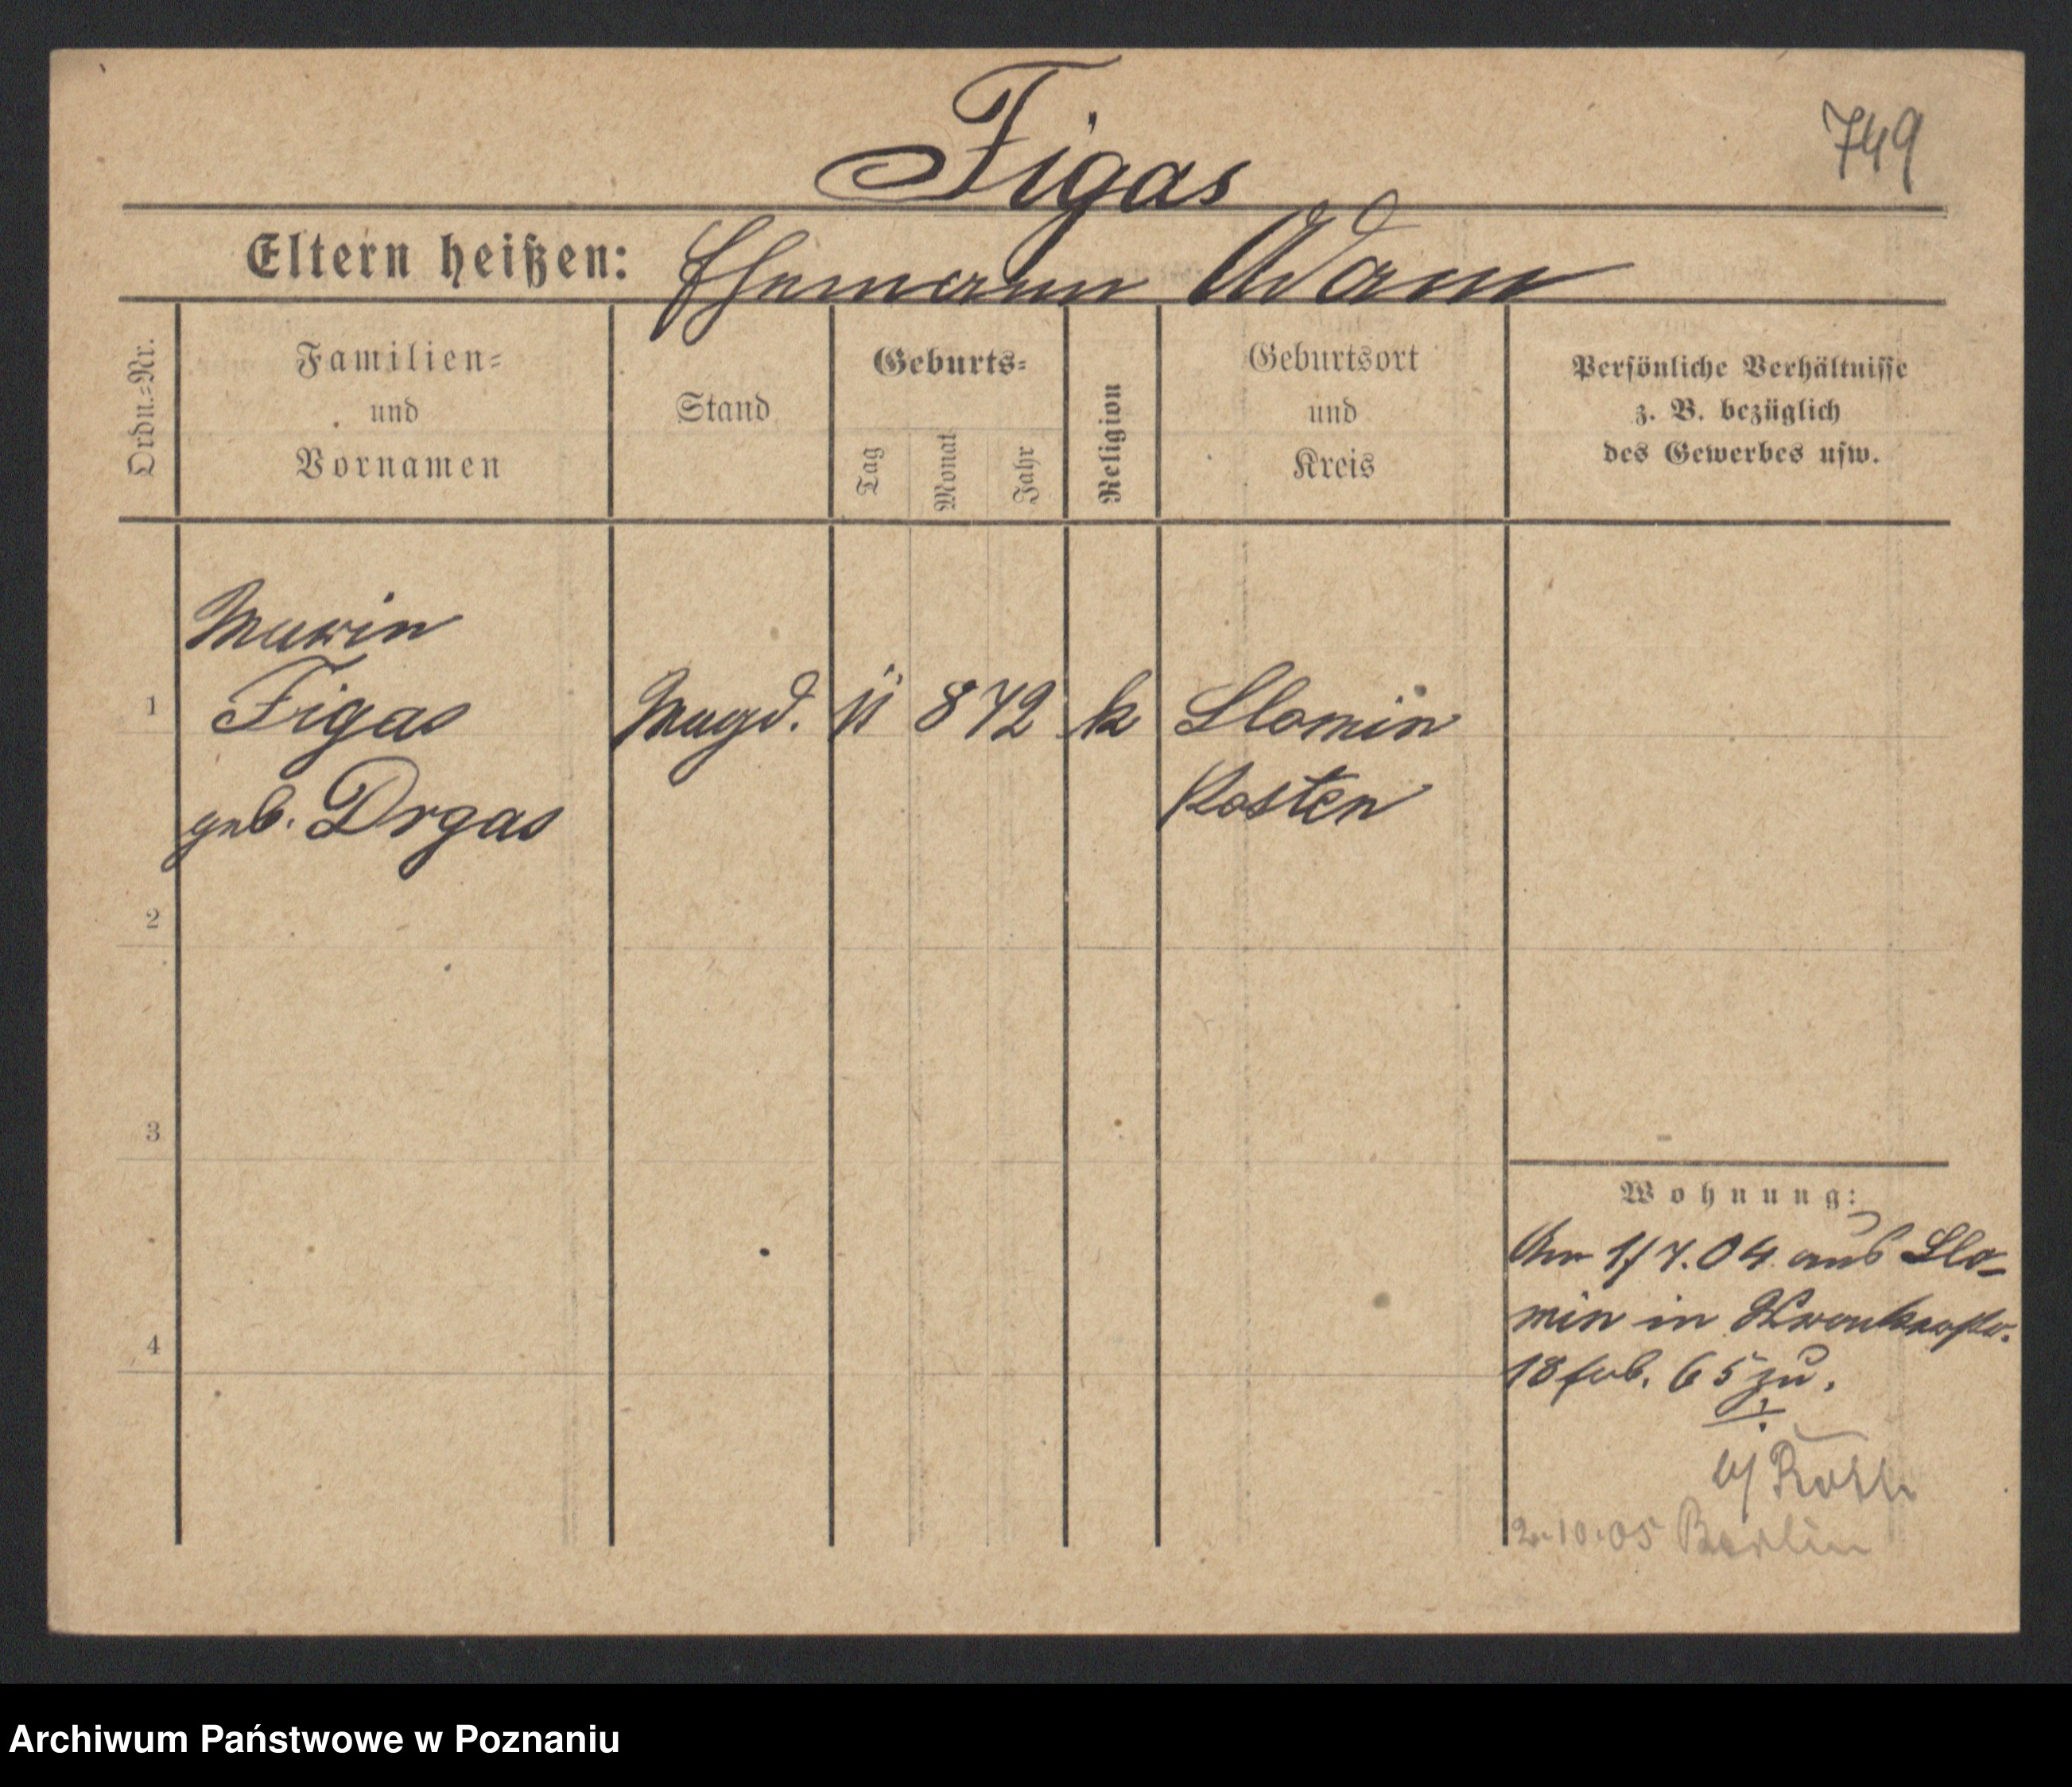 Figas
749
Eltern heißen: Ehemann Adam
Ordn.=Nr.
Familien=
und
Vornamen
Stand
Geburts=
Tag
Monat
Jahr
Religion
Geburtsort
und
Kreis
Persönliche Verhältnisse
z. B. bezüglich
des Gewerbes usw.
Marie
1 Figas Magd. 11 8 72 k Slomin
geb. Drgas Kosten
2
3
4
Wohnung:
Am 1/7.04 aus Slo-
min in
18 feb. 65 zu.
b/ Roth
2.10.05 Berlin
Archiwum Państwowe w Poznaniu